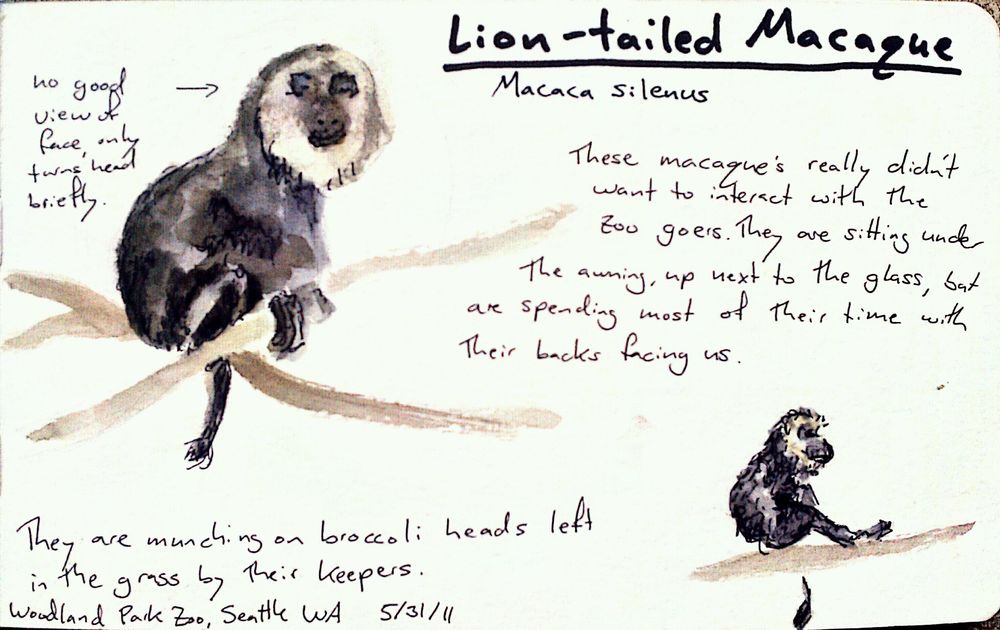 Lion-tailed Macaque
Macaca silenus
no good
view of
face, only
turns head
briefly.
These macaque's really didn't
want to interact with the
Zoo goers. They are sitting under
the awning, up next to the glass, but
are spending most of their time with
their backs facing us.
They are munching on broccoli heads left
in the grass by their keepers.
Woodland Park Zoo, Seattle WA 5/31/11